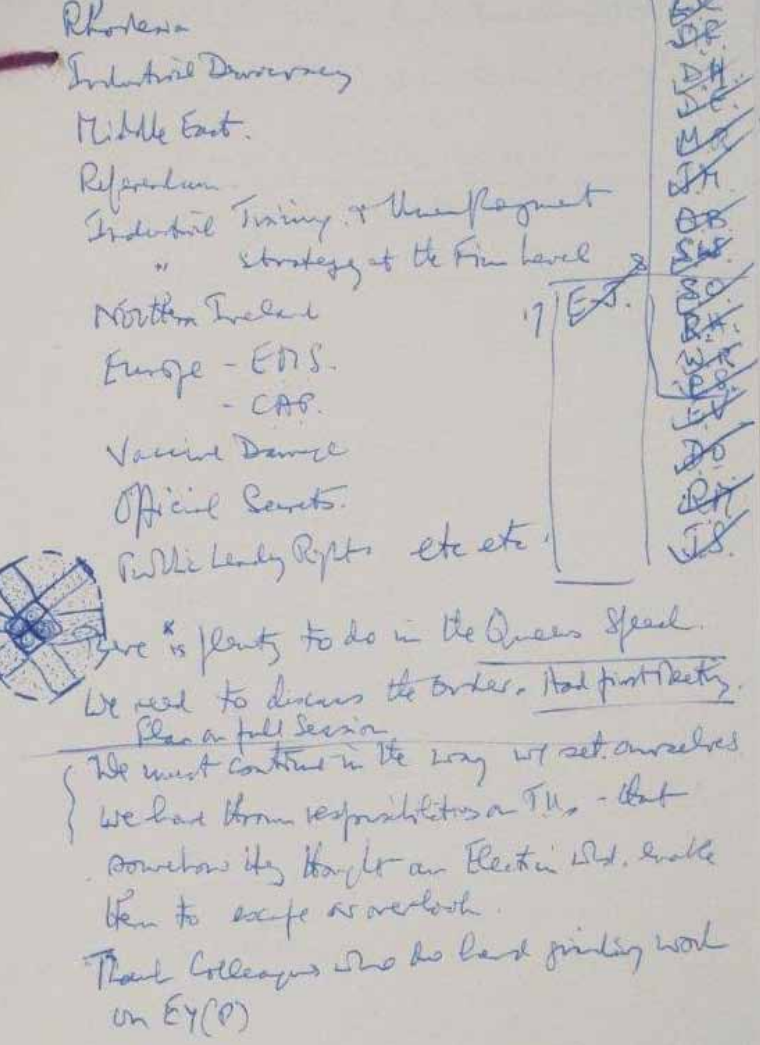 Rhodesia
Industrial Democracy
Middle East.
Referendum
Industrial Training & Unemployment
" strategy at the Firm Level
Northern Ireland
Europe - EMS.
- CAP.
Vaccine Damage
Official Secrets.
Public Lending Rights etc etc.
There is plenty to do in the Queens Speech.
We need to discuss the order. Had first Meeting.
Plan on full Session
We must continue in the way we set ourselves
We have thrown responsibilities on TUs - that
somehow they thought an Election wld. enable
them to escape or overlook.
Thank Colleagues who do hard grinding work
on EY(P)
17
E.J.
8
D.H.
D.E.
M.R.
J.M.
S.W.
S.O.
R.H.
W.R.
J.S.